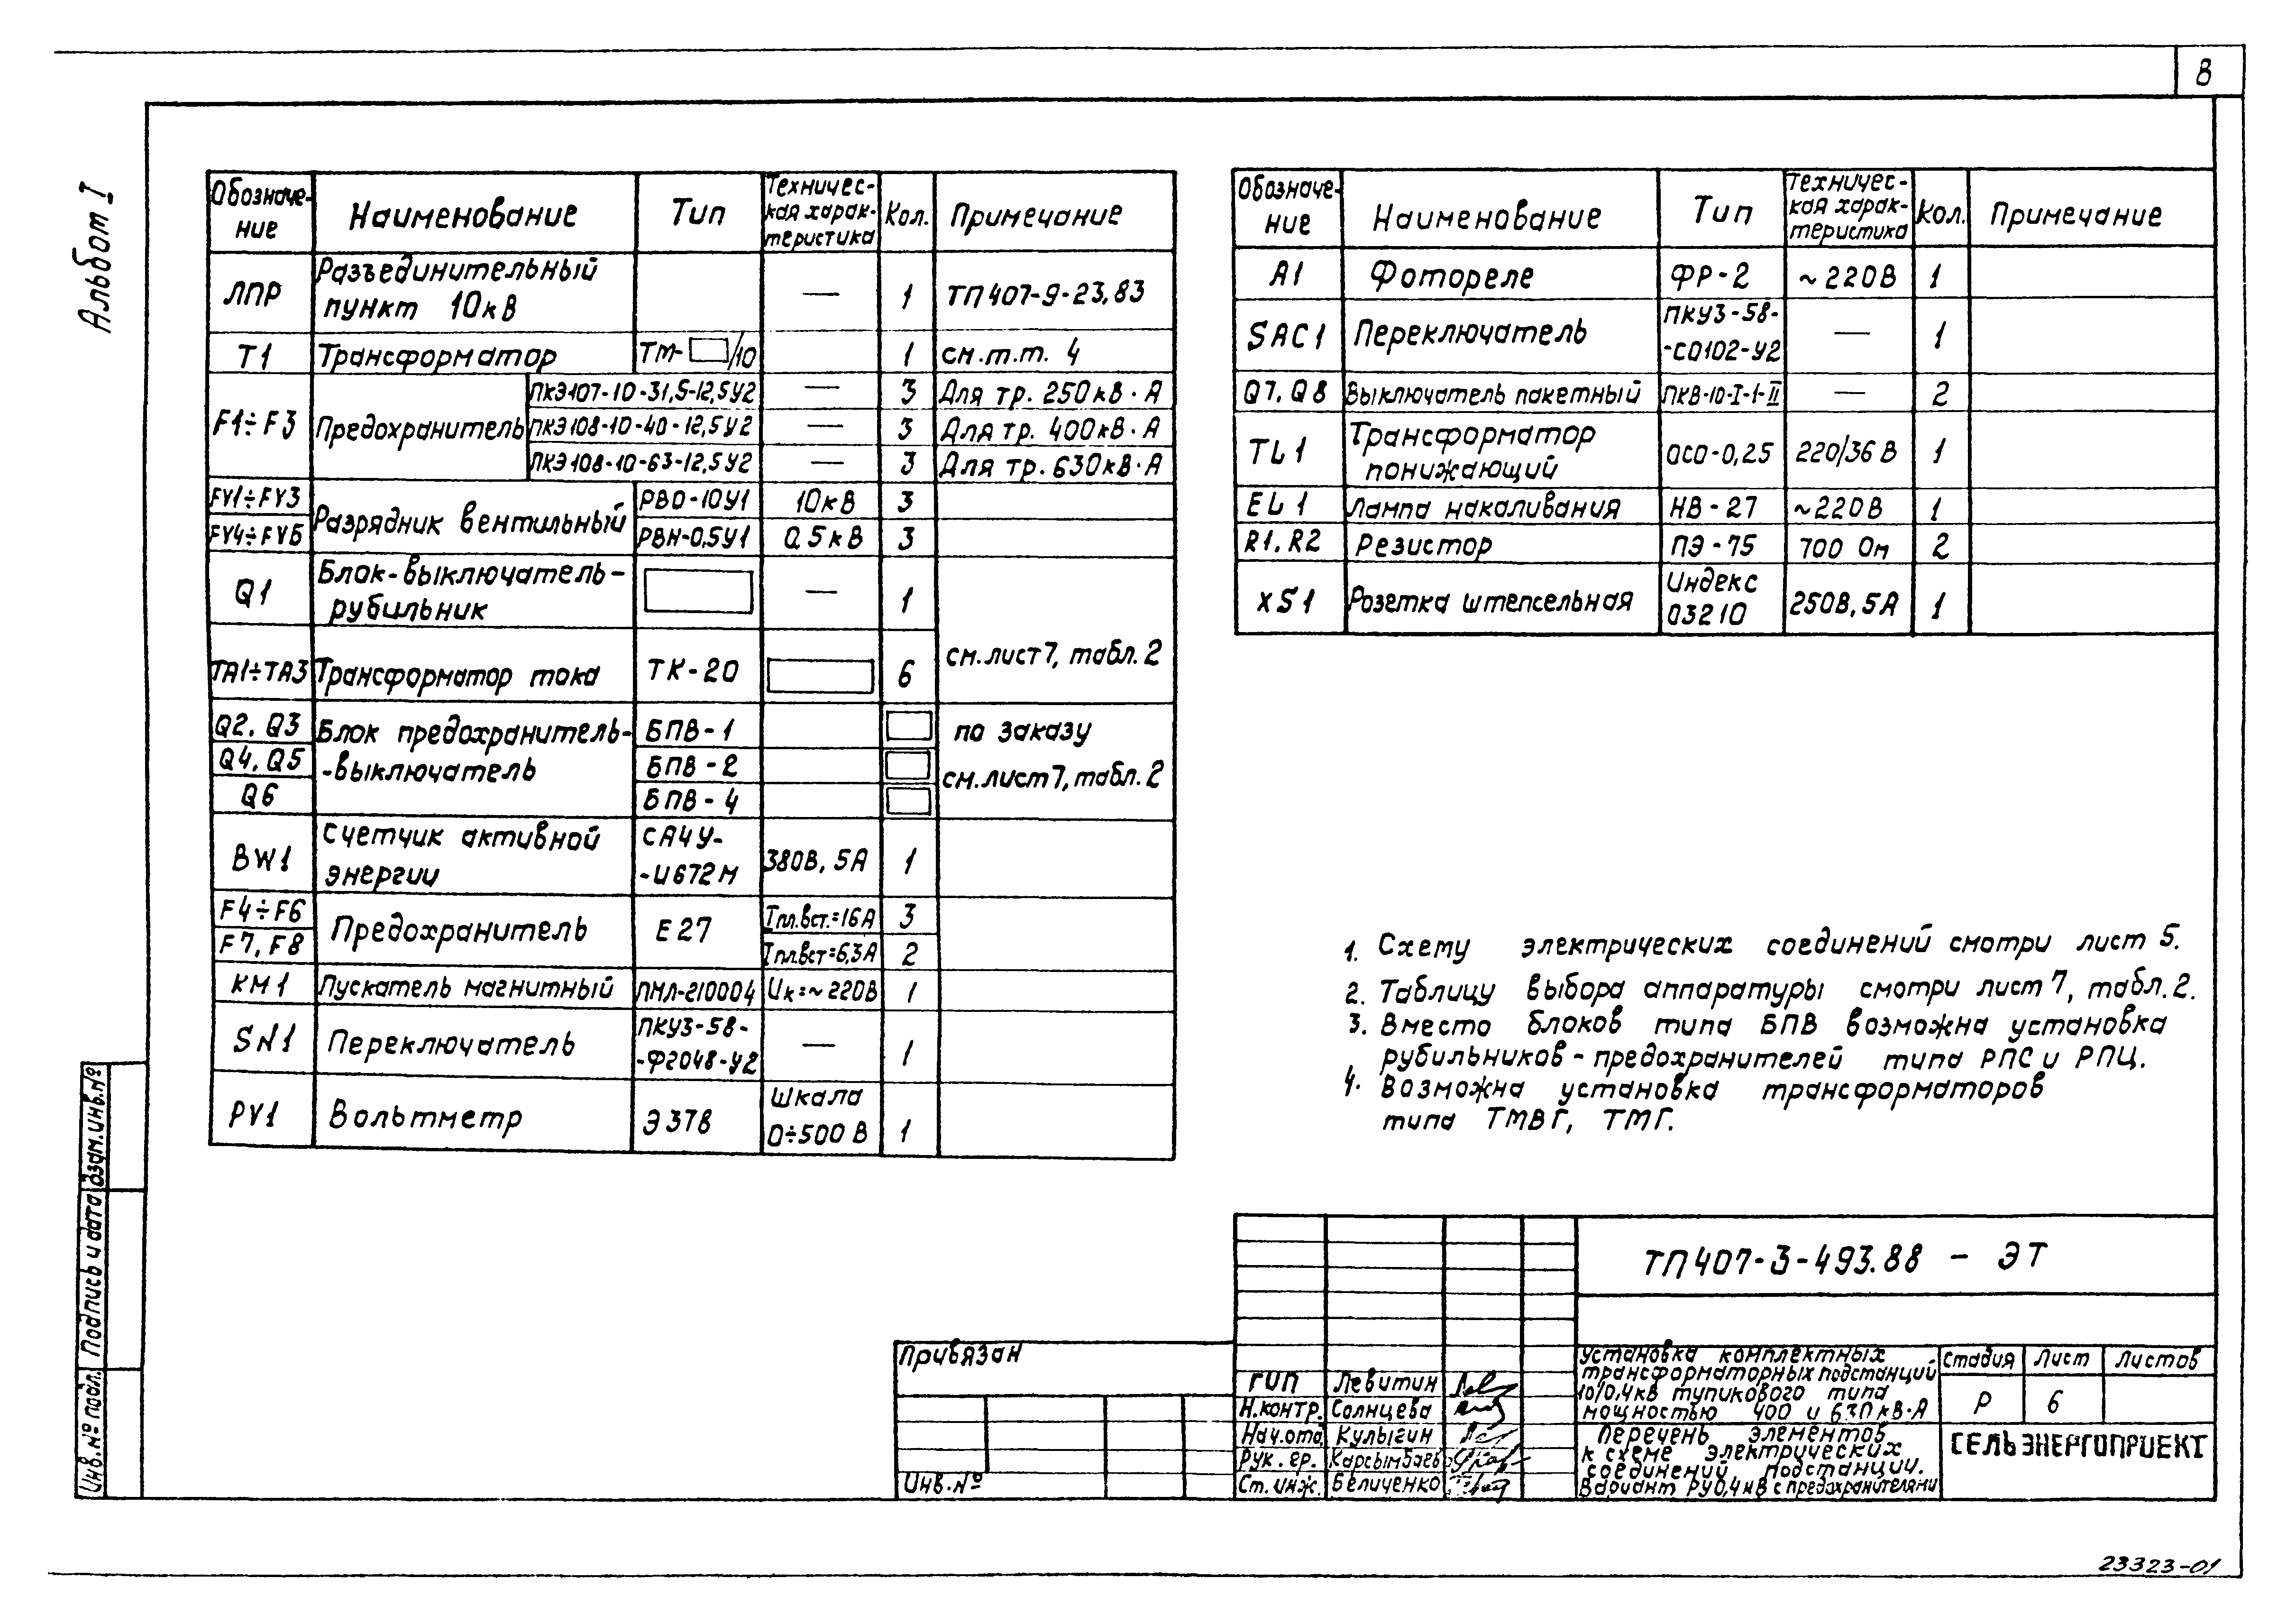 8
Альбом I
Обозначе-
ние
Наименование
Тип
Техничес-
кая харак-
теристика
Кол.
Примечание
ЛПР
Разъединительный
пункт 10кВ
—
1
ТП407-9-23,83
Т1
Трансформатор
ТМ- /10
1
см.т.т. 4
F1÷F3
Предохранитель
ПКЭ107-10-31,5-12,5У2
—
3
Для тр. 250кВ·А
ПКЭ108-10-40-12,5У2
—
3
Для тр. 400кВ·А
ПКЭ108-10-63-12,5У2
—
3
Для тр. 630кВ·А
FV1÷FV3
Разрядник вентильный
РВО-10У1
10кВ
3
FV4÷FV6
РВН-0,5У1
0.5кВ
3
Q1
Блок-выключатель-
рубильник
—
1
ТА1÷ТА3
Трансформатор тока
ТК-20
6
см.лист7, табл.2
Q2, Q3
Блок предохранитель-
-выключатель
БПВ-1
по заказу
Q4, Q5
БПВ-2
см.лист7, табл.2
Q6
БПВ-4
BW1
Счетчик активной
энергии
СА4У-
-И672М
380В, 5А
1
F4÷F6
Предохранитель
Е27
Iпл.вст.=16А
3
F7, F8
Iпл.вст=6,3А
2
КМ1
Пускатель магнитный
ПМЛ-210004
Uк=~220В
1
SN1
Переключатель
ПКУ3-58-
-Ф2048-У2
—
1
PV1
Вольтметр
Э378
Шкала
0÷500 В
1
Обозначе-
ние
Наименование
Тип
Техничес-
кая харак-
теристика
Кол.
Примечание
А1
Фотореле
ФР-2
~220В
1
SAC1
Переключатель
ПКУ3-58-
-С0102-У2
—
1
Q7, Q8
Выключатель пакетный
ПКВ-10-I-1-II
—
2
TL1
Трансформатор
понижающий
ОСО-0,25
220/36 В
1
EL1
Лампа накаливания
НВ-27
~220В
1
R1, R2
Резистор
ПЭ-75
700 Ом
2
XS1
Розетка штепсельная
Индекс
03210
250В, 5А
1
1. Схему электрических соединений смотри лист 5.
2. Таблицу выбора аппаратуры смотри лист 7, табл.2.
3. Вместо блоков типа БПВ возможна установка
рубильников-предохранителей типа РПС и РПЦ.
4. Возможна установка трансформаторов
типа ТМВГ, ТМГ.
ТП407-3-493.88 - ЭТ
Установка комплектных
трансформаторных подстанций
10/0,4кВ тупикового типа
мощностью 400 и 630кВ·А
Стадия
Лист
Листов
Р
6
Перечень элементов
к схеме электрических
соединений подстанции.
Вариант РУ0,4кВ с предохранителями
СЕЛЬЭНЕРГОПРОЕКТ
ГИП
Левитин
Н.контр.
Солнцева
Нач.отд.
Кулыгин
Рук. гр.
Карсымбаев
Ст. инж.
Беличенко
Привязан
Инв.№
Инв.№ подл.
Подпись и дата
Взам.инв.№
23323-01